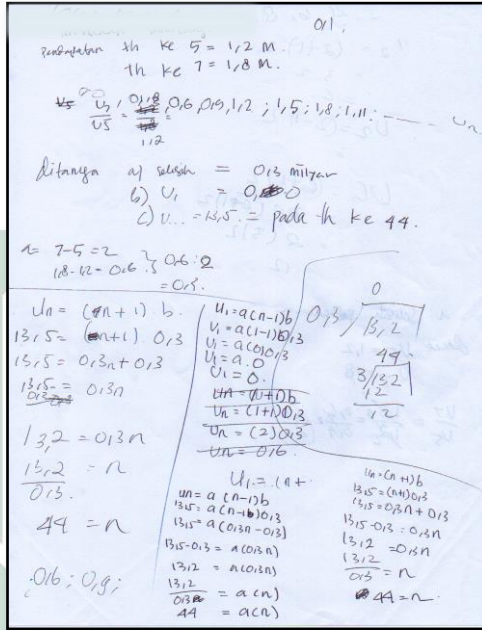 0,1.
th ke 5 = 1,2 M.
th ke 7 = 1,8 M.
U7/U5 = 0,6, 0,9, 1,2 ; 1,5 ; 1,8 ; 1,11 ; ------ Un
1,2
ditanya a) selisih = 0,3 milyar
b) U1 = 0
c) U... = 13,5. = pada th ke 44.
a = 7-5=2
1,8-1,2 = 0,6 } 0,6 : 2
= 0,3.
Un = (n+1) . b.
13,5 = (n+1) . 0,3
13,5 = 0,3n + 0,3
13,5 = 0,3n
13,2 = 0,3n
13,2/0,3 = n
44 = n
0,6 ; 0,9 ;
U1 = a(n-1)b
U1 = a(1-1)0,3
U1 = a(0)0,3
U1 = a.0
U1 = 0.
Un = (n+1)b
Un = (1+1)0,3
Un = (2)0,3
Un = 0,6.
U1 = (n+
Un = a(n-1)b
13,5 = a(n-1)0,3
13,5 = a(0,3n-0,3)
13,5-0,3 = a(0,3n)
13,2 = a(0,3n)
13,2/0,3 = a(n)
44 = a(n)
0
0,3/13,2
44
3/132
12
12
Un = (n+1)b
13,5 = (n+1)0,3
13,5 = 0,3n + 0,3
13,5-0,3 = 0,3n
13,2 = 0,3n
13,2/0,3 = n
44 = n.